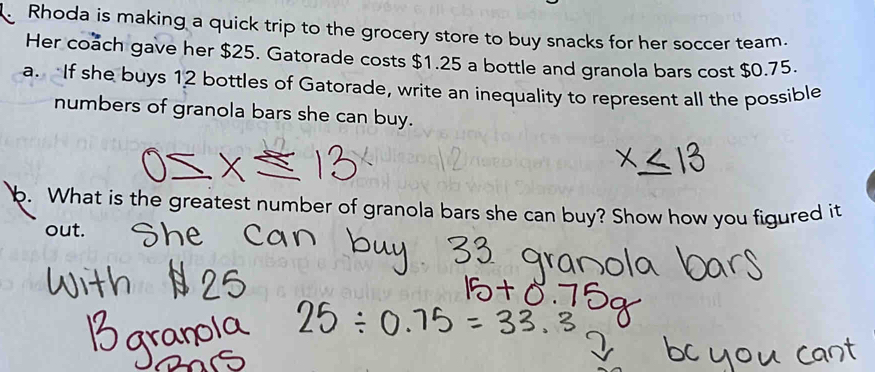 Rhoda is making a quick trip to the grocery store to buy snacks for her soccer team.
Her coach gave her $25. Gatorade costs $1.25 a bottle and granola bars cost $0.75.
a. If she buys 12 bottles of Gatorade, write an inequality to represent all the possible
numbers of granola bars she can buy.
0 ≤ x ≤ 13 x ≤ 13
b. What is the greatest number of granola bars she can buy? Show how you figured it
out. She can buy 33 granola bars
with $25 15+0.75g
13 granola 25 ÷ 0.75 = 33.3
Bars bc you cant